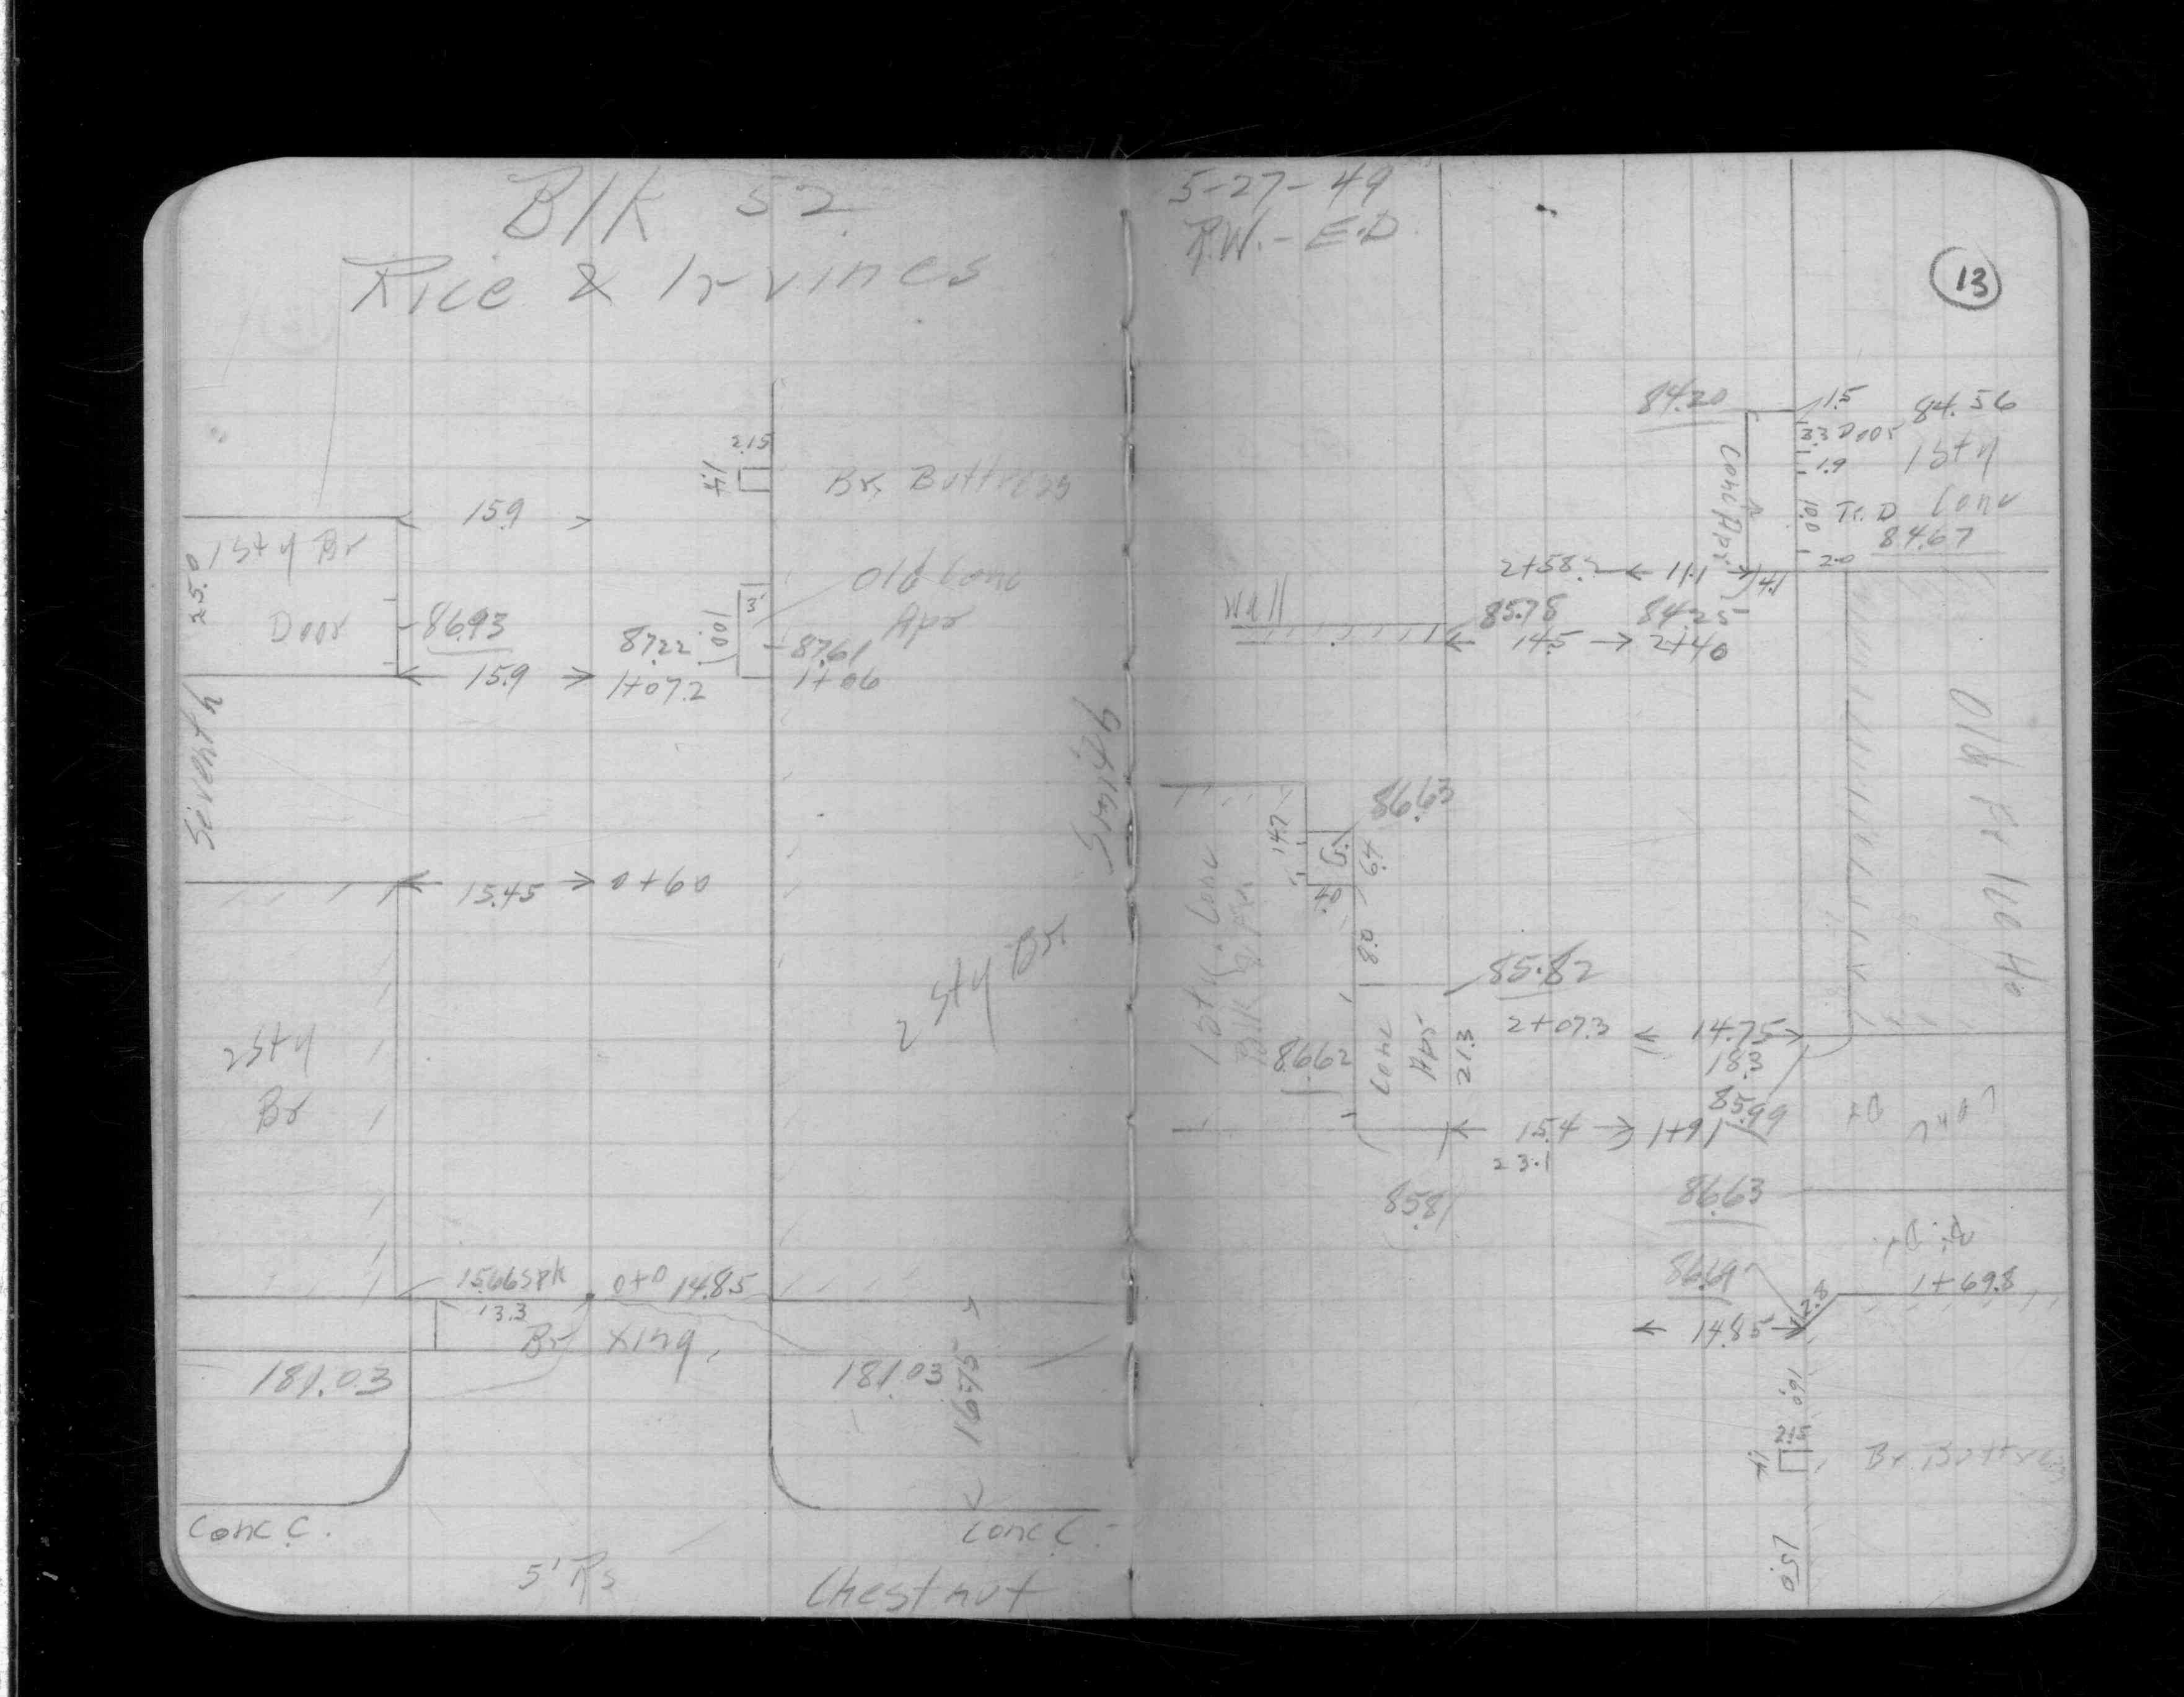 Blk 52
Rice & Irvines
2.15
4.1
Br. Buttress
15.9
1 Sty Br
25.0
Door
86.93
Old Conc
Apr
3'
10.0
87.22
87.61
15.9
1+07.2
1+06
Seventh
Smith
15.45
0+60
2 Sty Br
2 Sty
Br
15.66 spk
0+0
14.85
13.3
Br Xing.
181.03
181.03
16.75
Conc C.
Conc C.
5' Rs
Chestnut
5-27-49
R.W. - E.D.
13
84.20
1.5
84.56
3.3 Door
1 Sty
1.9
Conc Apr
10.0
Tr. D
Conc
84.67
2.0
2+58.2
11.1
4.1
Wall
85.78
84.25
14.5
2+40
Old Fr Ice Ho
86.63
14.7
6.4
4.0
8.0
Conc
Blk
85.82
2+07.3
14.75
18.3
86.62
Conc
Apr
21.3
85.99
15.4
1+91
23.1
85.81
Conc Dr
86.63
Dr
86.69
1+69.8
2.8
14.85
16.0
2.15
4.1
Br. Buttress
15.0